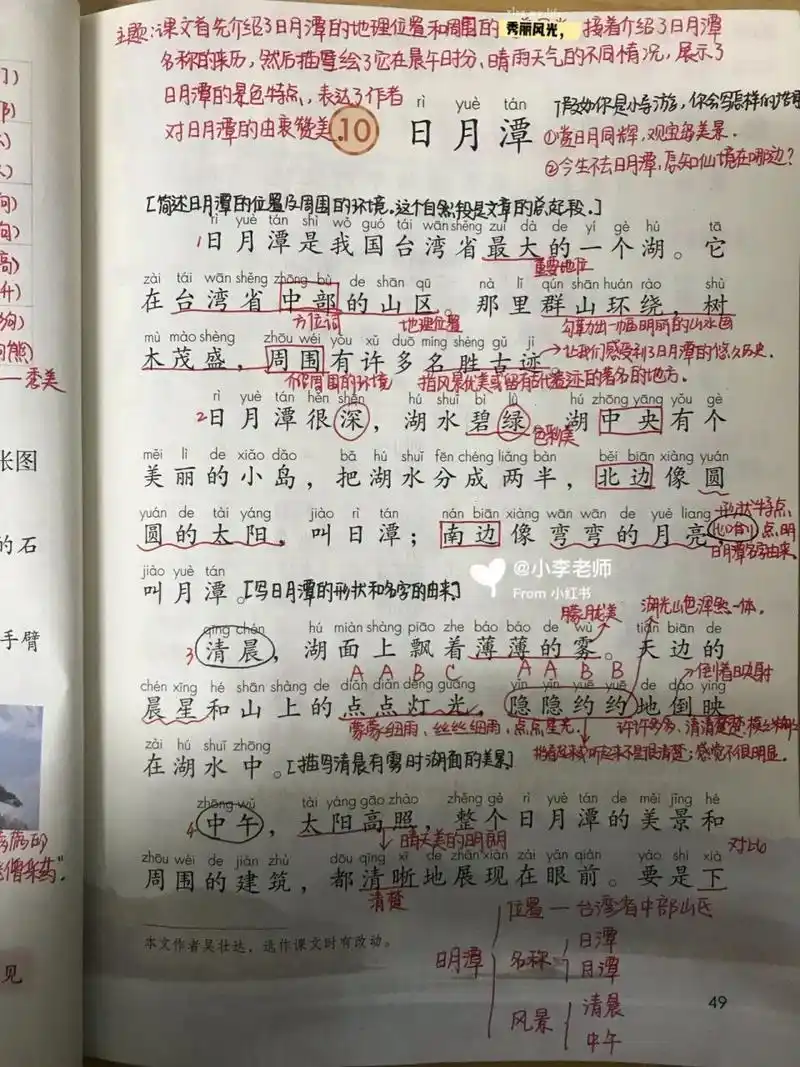 主题：课文首先介绍了日月潭的地理位置和周围的秀丽风光，接着介绍了日月潭
名称的来历，然后描绘了它在晨午时分、晴雨天气的不同情况，展示了
日月潭的景色特点，表达了作者
对日月潭的由衷赞美。
rì yuè tán
10 日月潭
假如你是小导游，你会写怎样的
①赏日月同辉，观宝岛美景。
②今生不去日月潭，怎知仙境在哪边？
[简述日月潭的位置及周围的环境。这个自然段是文章的总起段。]
rì yuè tán shì wǒ guó tái wān shěng zuì dà de yí gè hú tā
1日月潭是我国台湾省最大的一个湖。它
重要地位
zài tái wān shěng zhōng bù de shān qū nà lǐ qún shān huán rào shù
在台湾省中部的山区。那里群山环绕，树
方位词 地理位置 勾勒出一幅明丽的山水画
mù mào shèng zhōu wéi yǒu xǔ duō míng shèng gǔ jì
木茂盛，周围有许多名胜古迹
让我们感受到了日月潭的悠久历史。
介绍周围的环境 指风景优美或留有古代遗迹的著名的地方。
rì yuè tán hěn shēn hú shuǐ bì lǜ hú zhōng yāng yǒu gè
2日月潭很深，湖水碧绿 湖中央有个
色彩美
měi lì de xiǎo dǎo bǎ hú shuǐ fēn chéng liǎng bàn běi biān xiàng yuán
美丽的小岛，把湖水分成两半，北边像圆
yuán de tài yáng jiào rì tán nán biān xiàng wān wān de yuè liang
圆的太阳，叫日潭；南边像弯弯的月亮，
形状特点，
点明
日月潭名字由来。
jiào yuè tán
叫月潭。[写日月潭的形状和名字的由来]
@小李老师
From 小红书
朦胧美 湖光山色浑然一体。
qīng chén hú miàn shàng piāo zhe báo báo de wù tiān biān de
3清晨，湖面上飘着薄薄的雾。天边的
AABC AABB 倒着映射
chén xīng hé shān shàng de diǎn diǎn dēng guāng yǐn yǐn yuē yuē de dào yìng
晨星和山上的点点灯光，隐隐约约地倒映
蒙蒙细雨、丝丝细雨、点点星光。 许许多多、清清楚楚、
指看起来或听起来不是很清楚；感觉不很明显。
zài hú shuǐ zhōng
在湖水中。[描写清晨有雾时湖面的美景]
zhōng wǔ tài yáng gāo zhào zhěng gè rì yuè tán de měi jǐng hé
4中午，太阳高照，整个日月潭的美景和
晴天美的明朗 对比
zhōu wéi de jiàn zhù dōu qīng xī de zhǎn xiàn zài yǎn qián yào shi xià
周围的建筑，都清晰地展现在眼前。要是下
清楚
本文作者吴壮达，选作课文时有改动。
位置—台湾省中部山区
日潭
日月潭 名称
月潭
清晨
风景
中午
49
秀美
张图
的石
手臂
见